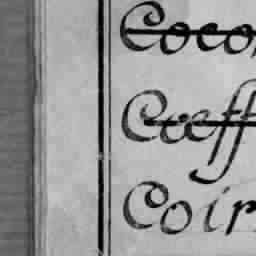 Coco
Coeff
Coir